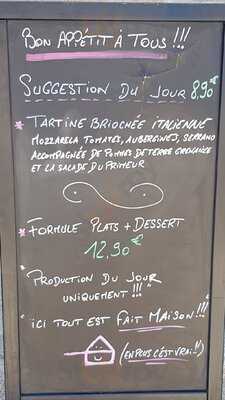 BON APPÉTIT À TOUS !!!
SUGGESTION DU JOUR 8,90€
* TARTINE BRIOCHÉE ITALIENNE
MOZZARELA TOMATES, AUBERGINES, SERRANO
ACCOMPAGNÉE DE POMMES DE TERRE GRENAILLE
ET LA SALADE DU PRIMEUR
* FORMULE PLATS + DESSERT
12,90€
"PRODUCTION DU JOUR
UNIQUEMENT !!!"
"ICI TOUT EST FAIT MAISON !!!"
(EN PLUS C'EST VRAI !!)